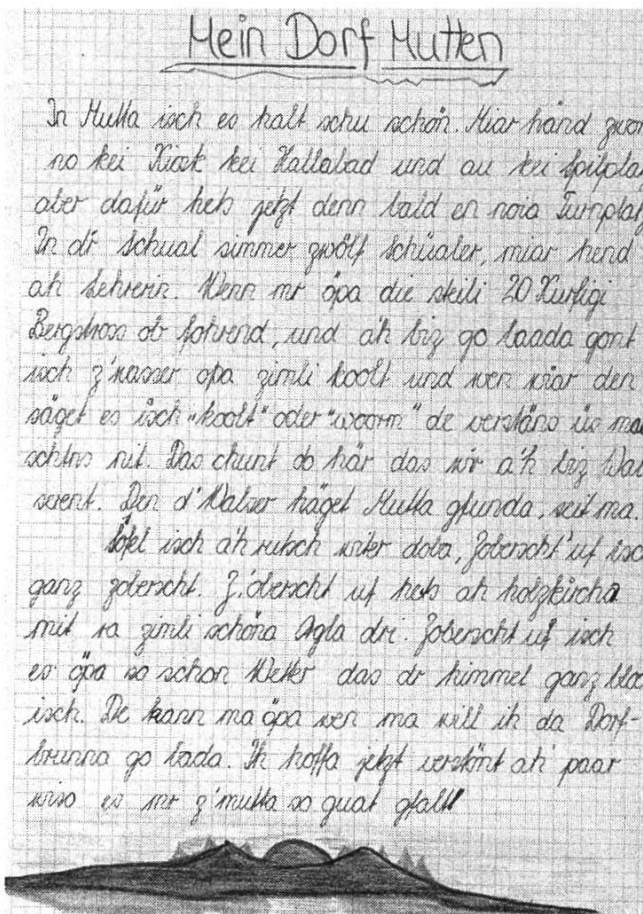 Mein Dorf Mutten
In Mutta isch es halt schu schön. Miar händ zwor
no kei Kiosk kei Hallabad und au kei Spilplatz
aber dafür hets jetzt denn bald en noia Turnplatz
In dr Schual simmer zwölf Schüaler, miar hend
ah Lehrerin. Wenn mr öpa die steili 20 Kurfigi
Bergstross ob fohrend, und äh biz go baada gont
isch z'wasser opa zimli koolt und wen wiar den
säget es isch "koolt" oder "woorm" de verstäns üs mai
schtns nit. Das chunt do här das wir a'h biz Wal
serent. Den d'Walser häget Mutta gfunda, seit ma.
isch äh rutsch witer doba, Zoberscht'uf isch
ganz zoberscht. Z'oberscht uf hets ah holzkircha
mit ra zimli schöna Ogla dri. Zoberscht uf isch
es öpa so schon Wetter das dr himmel ganz
isch. De kann ma öpa wen ma will ih da Dorf-
brunna go bada. Ih hoffa jetzt verstönt ah' paar
wiso es mr z'mutta so guat gfallt!